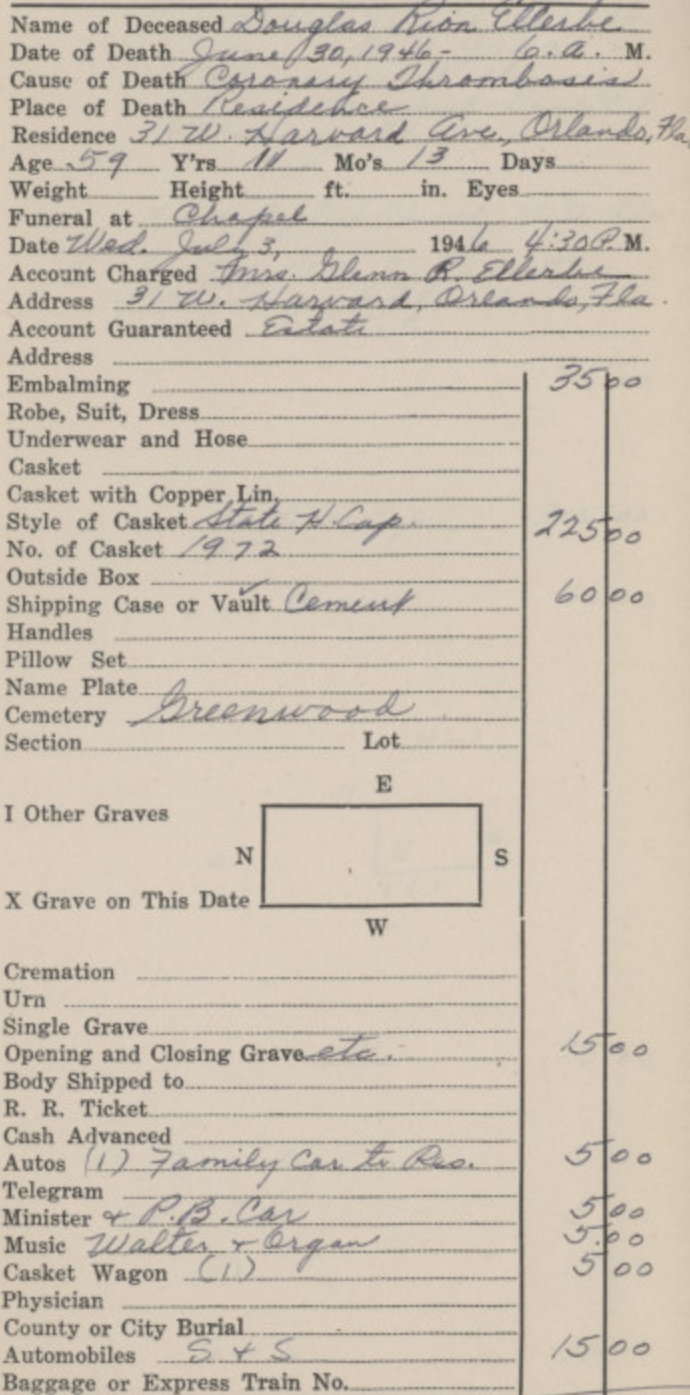 Name of Deceased Douglas Rion Ellerbe
Date of Death June 30, 1946 - 6. a. M.
Cause of Death Coronary Thrombosis
Place of Death Residence
Residence 31 W. Harvard Ave., Orlando, Fla
Age 59 Y'rs 11 Mo's 13 Days
Weight Height ft. in. Eyes
Funeral at Chapel
Date Wed. July 3, 1946 4:30 P. M.
Account Charged Mrs. Glenn R. Ellerbe
Address 31 W. Harvard, Orlando, Fla.
Account Guaranteed Estate
Address
Embalming 35 00
Robe, Suit, Dress
Underwear and Hose
Casket
Casket with Copper Lin.
Style of Casket State H. Cap. 225 00
No. of Casket 1972
Outside Box
Shipping Case or Vault Cement 60 00
Handles
Pillow Set
Name Plate
Cemetery Greenwood
Section Lot
E
I Other Graves
N S
X Grave on This Date
W
Cremation
Urn
Single Grave
Opening and Closing Grave etc. 15 00
Body Shipped to
R. R. Ticket
Cash Advanced
Autos (1) Family Car to Res. 5 00
Telegram
Minister + P.B. Car 5 00
Music Walter + Organ 5.00
Casket Wagon (1) 5 00
Physician
County or City Burial
Automobiles S + S 15 00
Baggage or Express Train No.